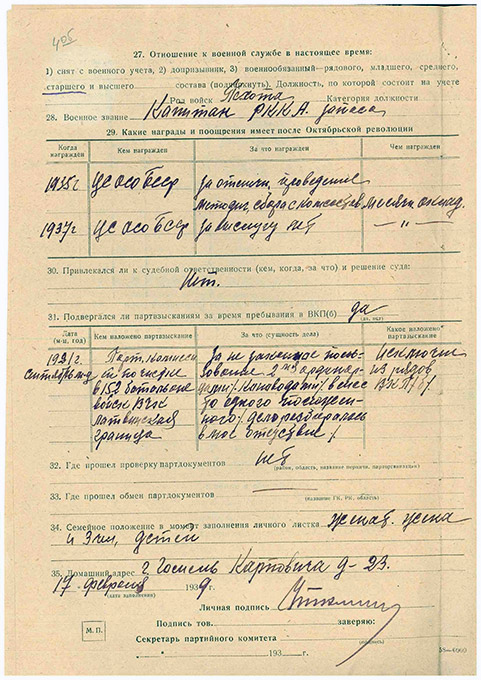 405
27. Отношение к военной службе в настоящее время:
1) снят с военного учета, 2) допризывник, 3) военнообязанный—рядового, младшего, среднего,
старшего и высшего состава (подчеркнуть). Должность, по которой состоит на учете
Род войск Пехота Категория должности
28. Военное звание Капитан РККА запаса
29. Какие награды и поощрения имеет после Октябрьской революции
Когда награжден Кем награжден За что награжден Чем награжден
1935г ЦС осо БССР За отличн. проведение
методич. сбора с комсостав. месячн. оклад.
1937г ЦС осо БССР За выслугу лет — „ —
30. Привлекался ли к судебной ответственности (кем, когда, за что) и решение суда:
Нет.
31. Подвергался ли партвзысканиям за время пребывания в ВКП(б) да
(да, нет)
Дата (м-ц, год) Кем наложено партвзыскание За что (сущность дела) Какое наложено партвзыскание
1921г. Парт. Комисси За не законное поль- исключен
сентябрь м-ц ей по чистке зование 2мя из рядов
в 152 батальоне вместе ВКП/б/
войск ВЧК то одного
Латвийская дело разбиралось
граница в мое отсутствие/
32. Где прошел проверку партдокументов нет
(район, область, название первичн. парторганизации)
33. Где прошел обмен партдокументов —
(название ГК, РК, область)
34. Семейное положение в момент заполнения личного листка женат. жена
и 3 чел. детей
35. Домашний адрес г. Гомель Карповича д-23.
17 февраля 1939г.
(дата заполнения)
Личная подпись
М.П.
Подпись тов. заверяю:
Секретарь партийного комитета
(подпись)
„ “ 193 г.